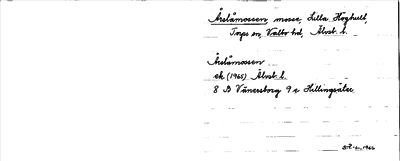 Årslåmossen, mosse, Lilla Höghult,
Torps sn, Valbo hd, Älvsb. l.
Årslåmossen
ek (1965) Älvsb. l.
8 B Vänersborg 9 e Hillingsäter
1966